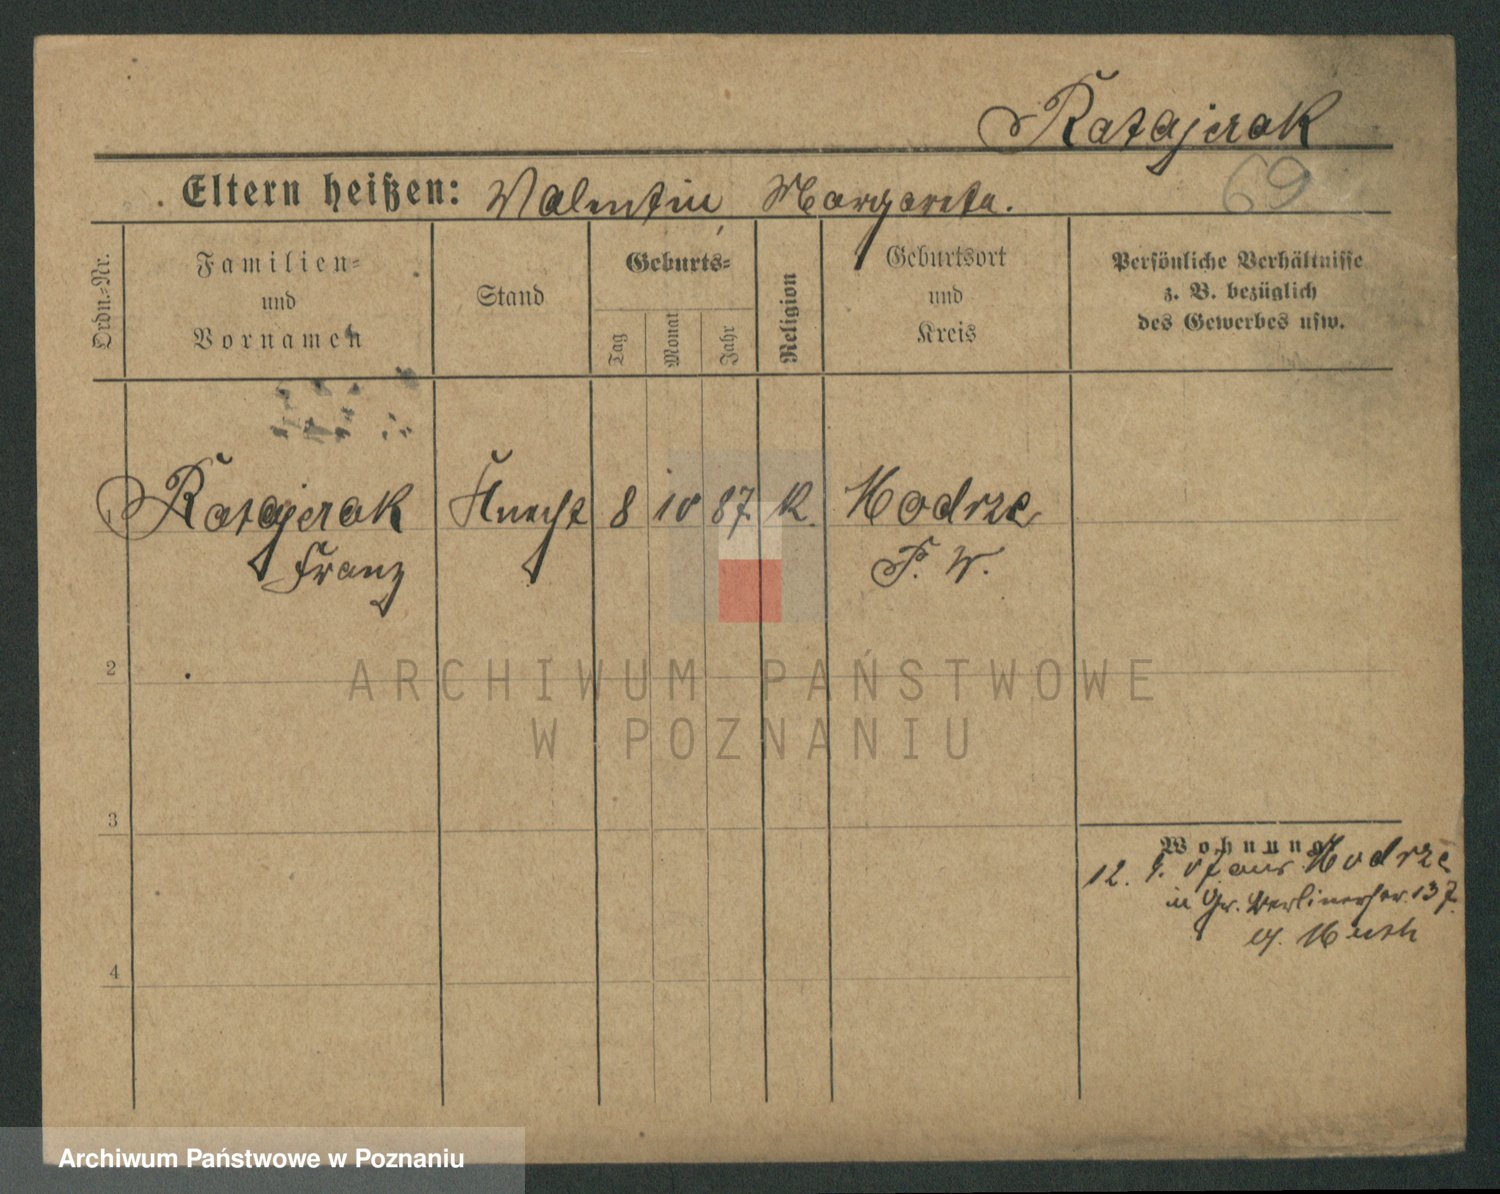 Ratajczak
69
Eltern heißen: Valentin Margareta.
Ordn.-Nr.
Familien-
und
Vornamen
Stand
Geburts-
Tag
Monat
Jahr
Religion
Geburtsort
und
Kreis
Persönliche Verhältnisse
z. B. bezüglich
des Gewerbes usw.
Ratajczak Knecht 8 10 87 K. Modrze
Franz P. W.
2
3
4
Wohnung
12. 9. 07 aus Modrze
in Gr. Berlinerstr. 137.
ARCHIWUM PAŃSTWOWE
W POZNANIU
Archiwum Państwowe w Poznaniu